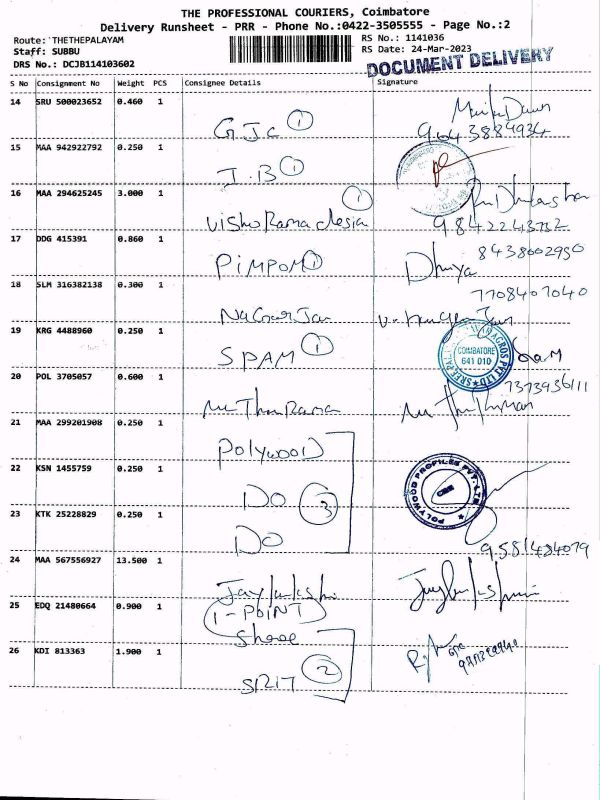 THE PROFESSIONAL COURIERS, Coimbatore
Delivery Runsheet - PRR - Phone No.:0422-3505555 - Page No.:2
Route: THETHEPALAYAM
RS No.: 1141036
Staff: SUBBU
RS Date: 24-Mar-2023
DRS No.: DCJB114103602
DOCUMENT DELIVERY
S No Consignment No Weight PCS Consignee Details Signature
14 SRU 500023652 0.460 1
GJC 1
9043884934
15 MAA 942922792 0.250 1
J.B 1
16 MAA 294625245 3.000 1
1
9842243732
17 DDG 415391 0.860 1
PIMPOM 1 Dhivya
8438002950
18 SLM 316382138 0.300 1
7708407040
Nagarjan
19 KRG 4488960 0.250 1
SPAM 1
COIMBATORE
641 010
7373936111
20 POL 3705057 0.600 1
21 MAA 299201908 0.250 1
POLYWOOD
22 KSN 1455759 0.250 1
DO 3
POLYWOOD PROFILES PVT. LTD.
CBE
23 KTK 25228829 0.250 1
DO
9581484079
24 MAA 567556927 13.500 1
25 EDQ 21480664 0.900 1
I-POINT
26 KDI 813363 1.900 1
2